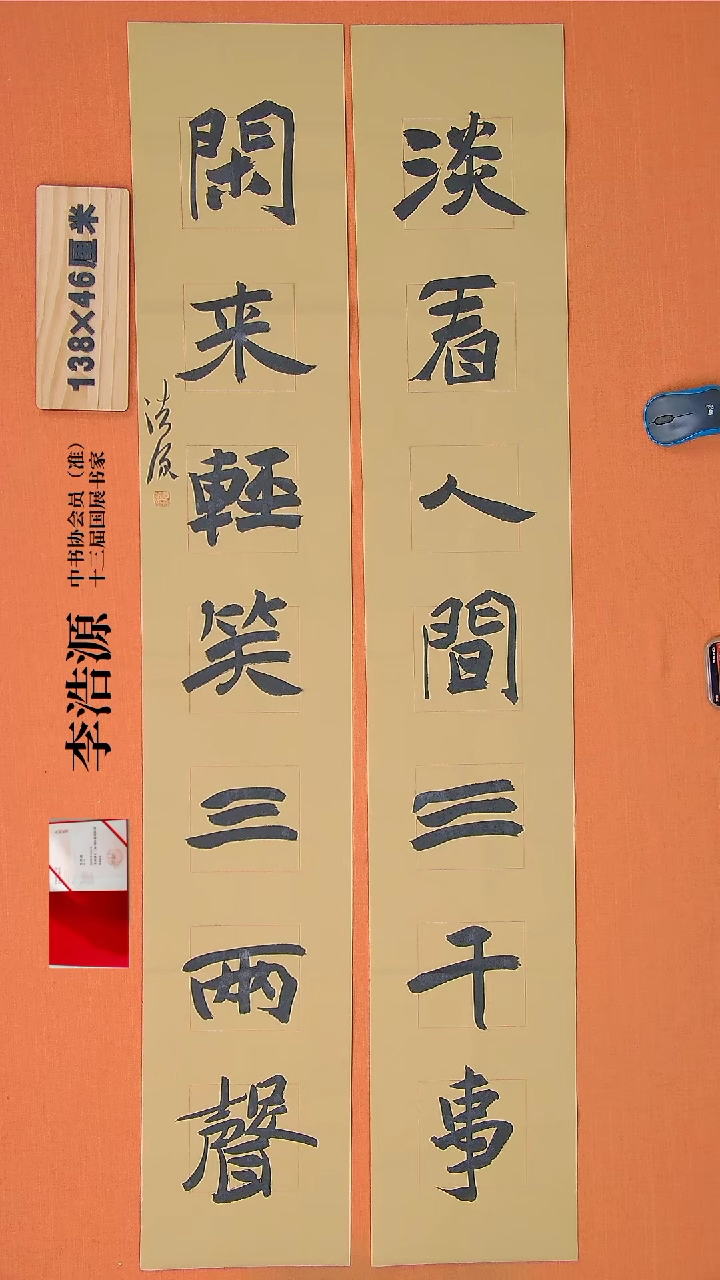 淡看人間三千事
閑来輕笑三兩聲
浩源
138×46厘米
中书协会员（准）
十三届国展书家
李浩源